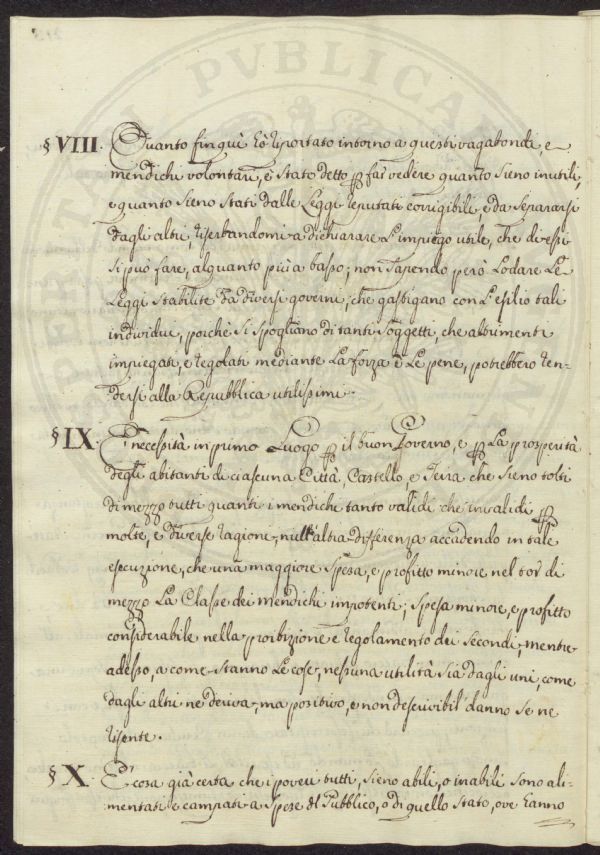 § VIII. Quanto finquì hò riportato intorno a questi vagabondi, e
mendichi volontarj, è stato detto p far vedere quanto sieno inutili,
e quanto sieno stati dalle Leggi reputati corrigibili, e da separarsi
dagli altri, riserbandomi a dichiarare l'impiego utile, che di essi
si può fare, alquanto più a basso; non sapendo però Lodare Le
Leggi stabilite da diversi governi, che gastigano con L'esilio tali
individui, poiché si spogliano di tanti soggetti, che altrimenti
impiegati, e regolati mediante La forza e Le pene, potrebbero ren-
dersi alla Repubblica utilissimi.
§ IX. È necessità in primo Luogo p il buon Governo, e p La prosperità
degli abitanti di ciascuna Città, Castello, e Terra che sieno tolti
di mezzo tutti quanti i mendichi tanto validi che invalidi p
molte, e diverse ragione, null'altra differenza accadendo in tale
esecuzione, che una maggiore spesa, e profitto minore nel tor di
mezzo La Classe dei mendichi impotenti; spesa minore, e profitto
considerabile nella proibizione e regolamento dei secondi, mentre
adesso, a come stanno Le cose, nessuna utilità sia dagli uni, come
dagli altri ne deriva, ma positivo, e non descivibil danno se ne
risente.
§ X. È cosa già certa che i poveri tutti, sieno abili, o inabili sono ali-
mentati e campati a spese del Pubblico, o di quello stato, ove hanno
PVBLICA